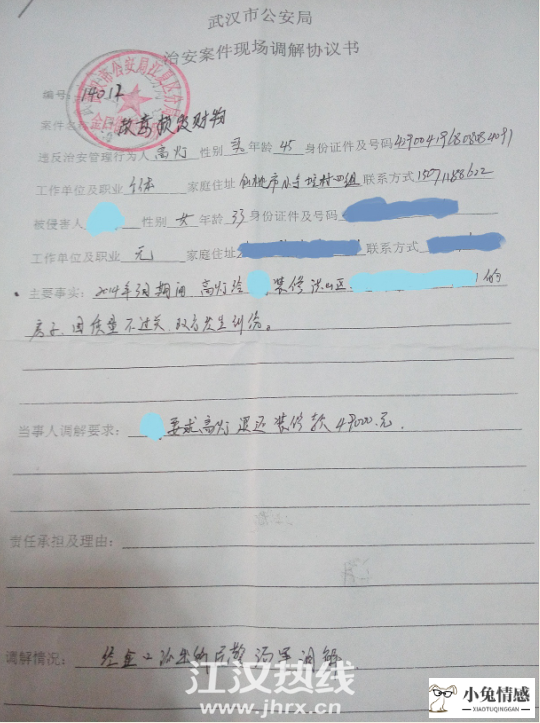 武汉市公安局
治安案件现场调解协议书
编号: 14012
案件名称 故意损毁财物
违反治安管理行为人 高灯 性别 男 年龄 45 身份证件及号码
工作单位及职业 个体 家庭住址 仙桃市 村四组 联系方式
被侵害人 性别 女 年龄 33 身份证件及号码
工作单位及职业 无 家庭住址 联系方式
主要事实: 2014年 期间 高灯给 装修洪山区 的
房子,因质量不过关,双方发生纠纷。
当事人调解要求: 要求高灯退还装修款49000元.
责任承担及理由:
调解情况: 经 派出所民警 调解
江汉热线
www.jhrx.cn
小兔情感
XIAOTUQINGGAN